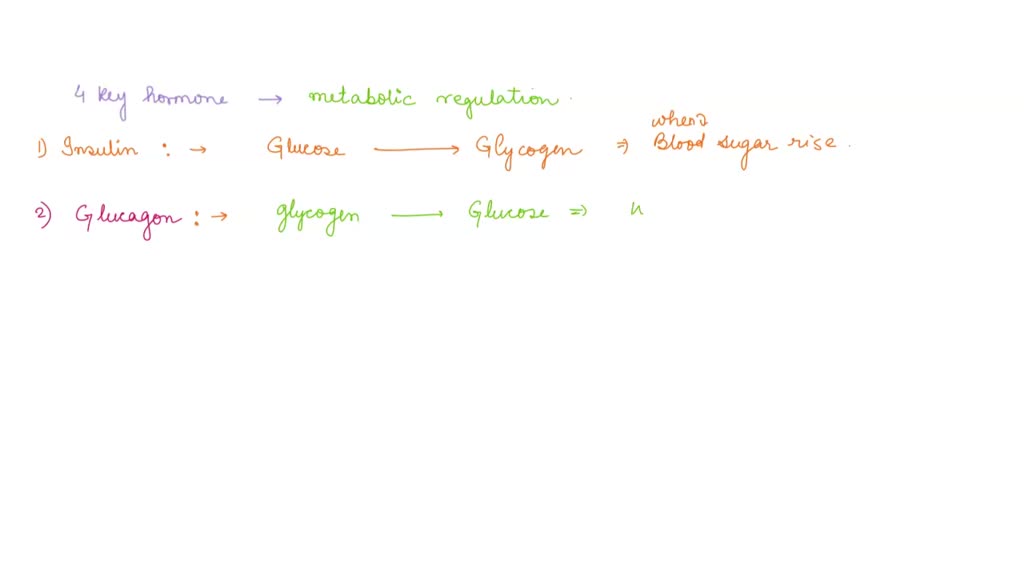 4 key hormone → metabolic regulation.
1) Insulin : → Glucose → Glycogen ⇒ when Blood sugar rise.
2) Glucagon : → glycogen → Glucose ⇒